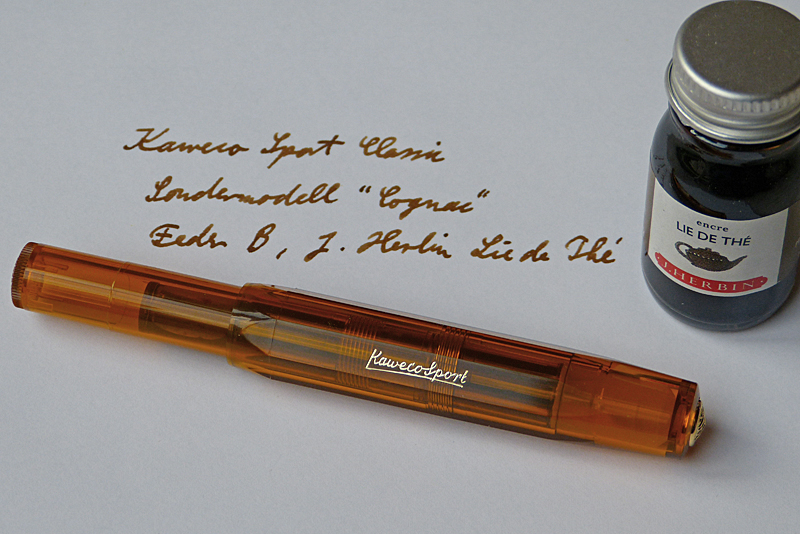 Kaweco Sport Classic
Sondermodell "Cognac"
Feder B, J. Herbin Lie de Thé
encre
LIE DE THÉ
J.HERBIN
KawecoSport